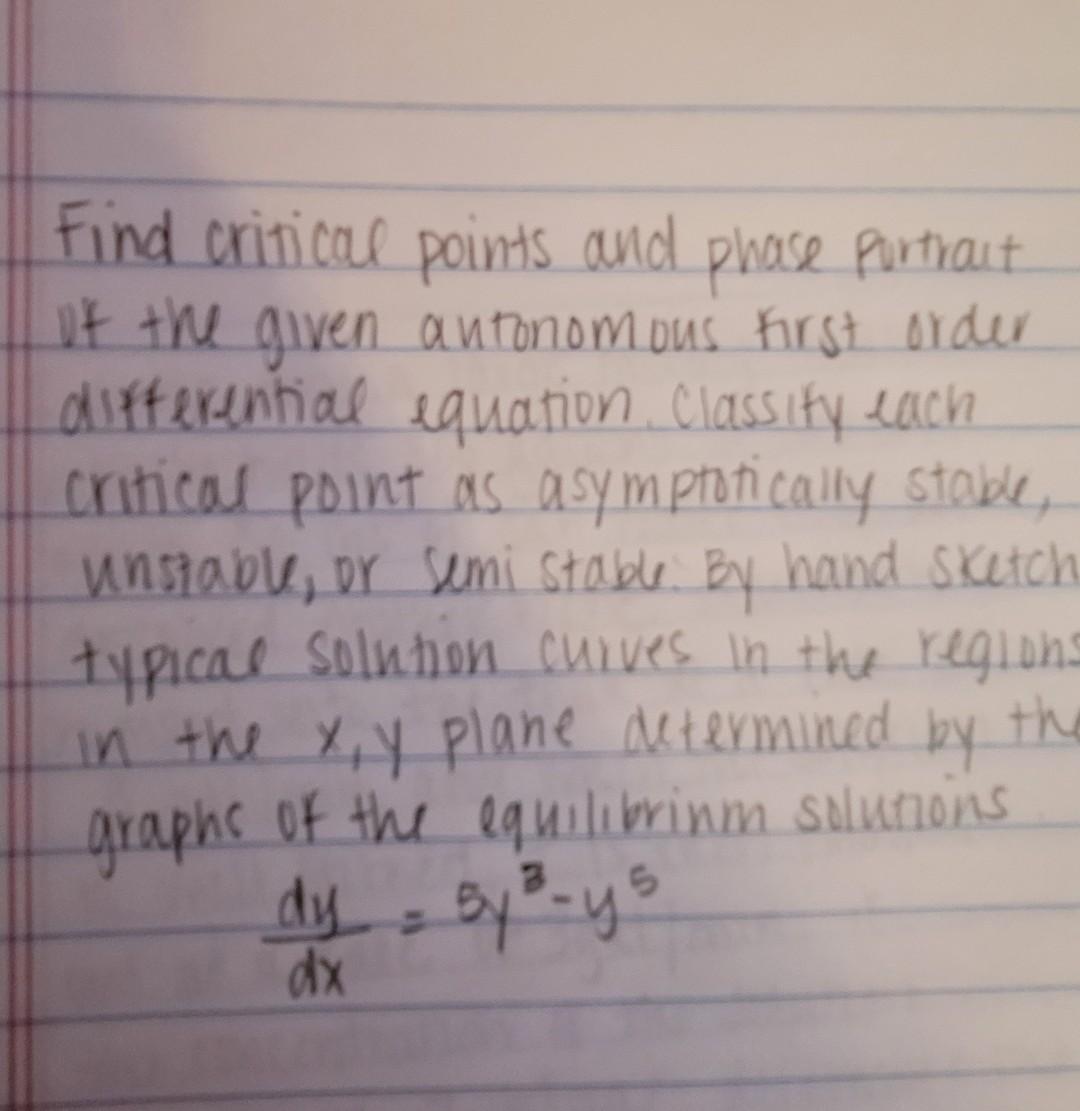 Find critical points and phase portrait
of the given autonomous first order
differential equation. Classify each
critical point as asymptotically stable,
unstable, or semi stable. By hand sketch
typical solution curves in the regions
in the x, y plane determined by the
graphs of the equilibrium solutions
dy/dx = 5y³ - y⁵